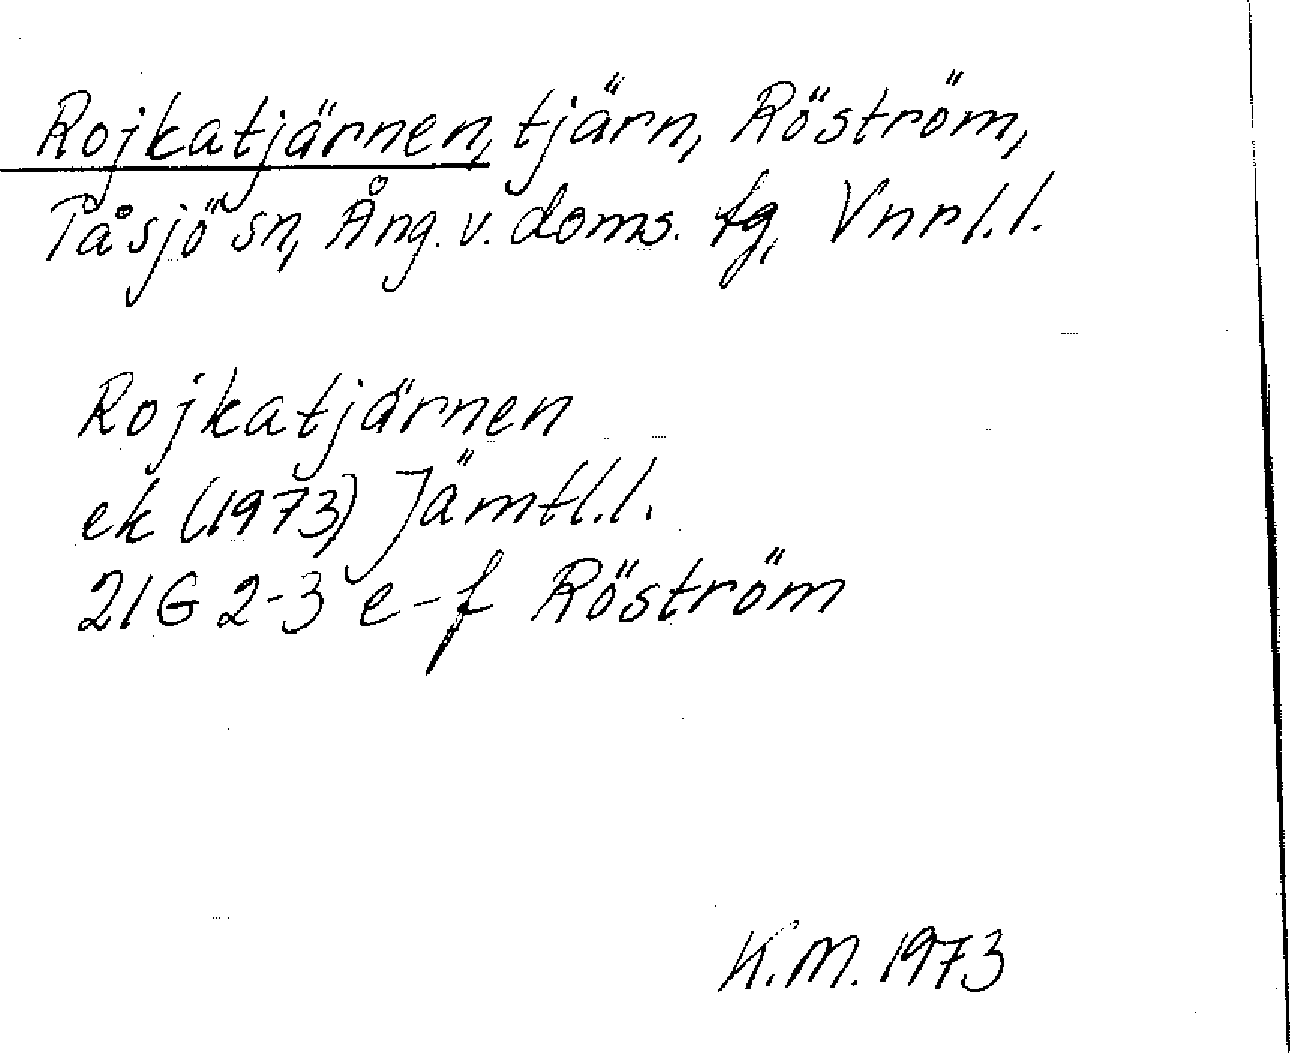 Rojkatjärnen, tjärn, Röström,
Tåsjö sn, Ång. v. doms. tg, Vnrl. l.
Rojkatjärnen
ek (1973) Jämtl. l.
21G 2-3 e-f Röström
K.M. 1973